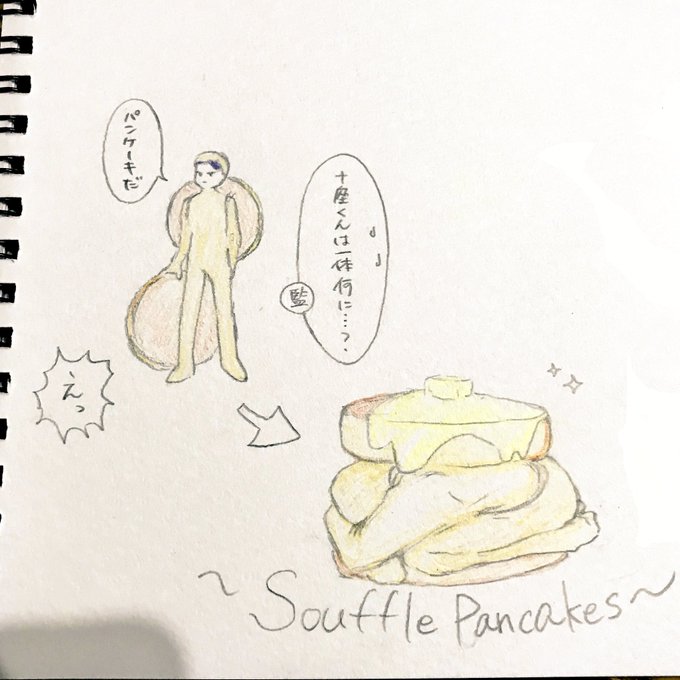 パンケーキだ
十座くんは一体何に…?
監
えっ
~Souffle Pancakes~